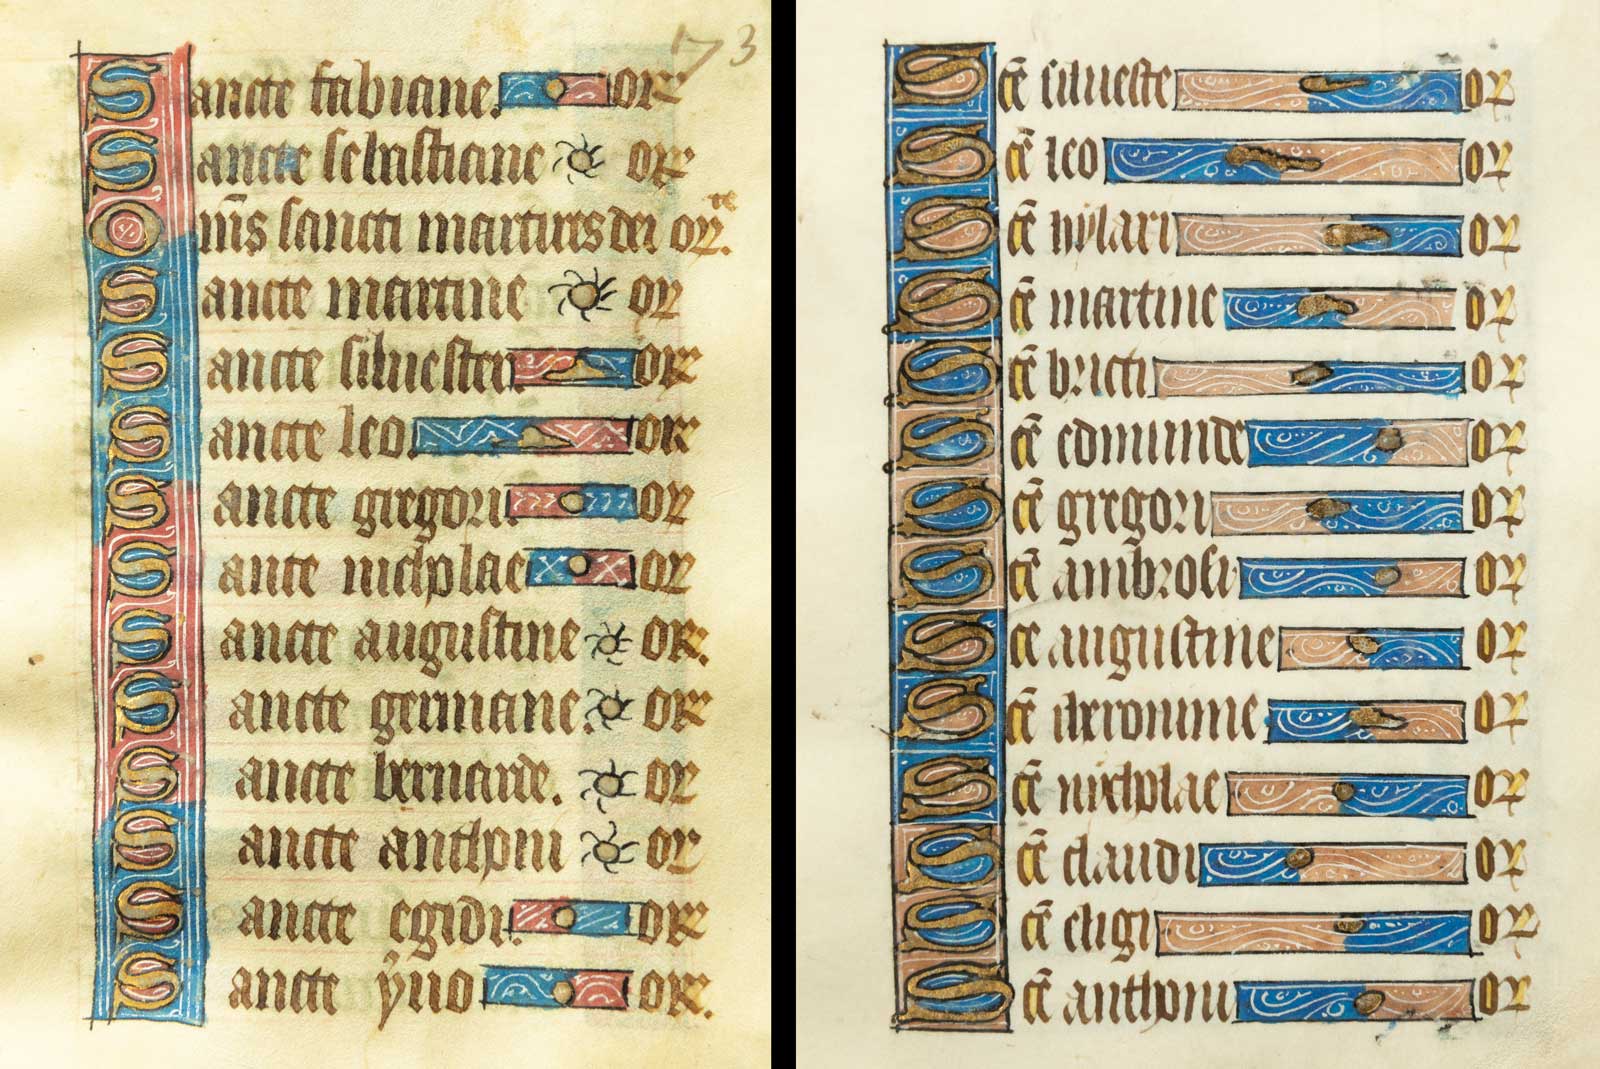 173
Sancte fabiane. or
Sancte sebastiane or
Om̅s sancti martires dei or.
Sancte martine or
Sancte siluester or
Sancte leo. or
Sancte gregori. or
Sante nicholae or
Sancte augustine or.
Sancte germane. or
Sancte bernarde. or
Sancte anthoni or
Sancte egidi. or
Sancte yuo or.
Sce̅ silueste or
Sce̅ leo or
Sce̅ hylari or
Sce̅ martine or
Sce̅ bricti or
Sce̅ edmunde or
Sce̅ gregori or
Sce̅ ambrosi or
Sce augustine or
Sce̅ iheronime or
Sce̅ nicholae or
Sce̅ claudi or
Sce̅ eligi or
Sce̅ anthoni or